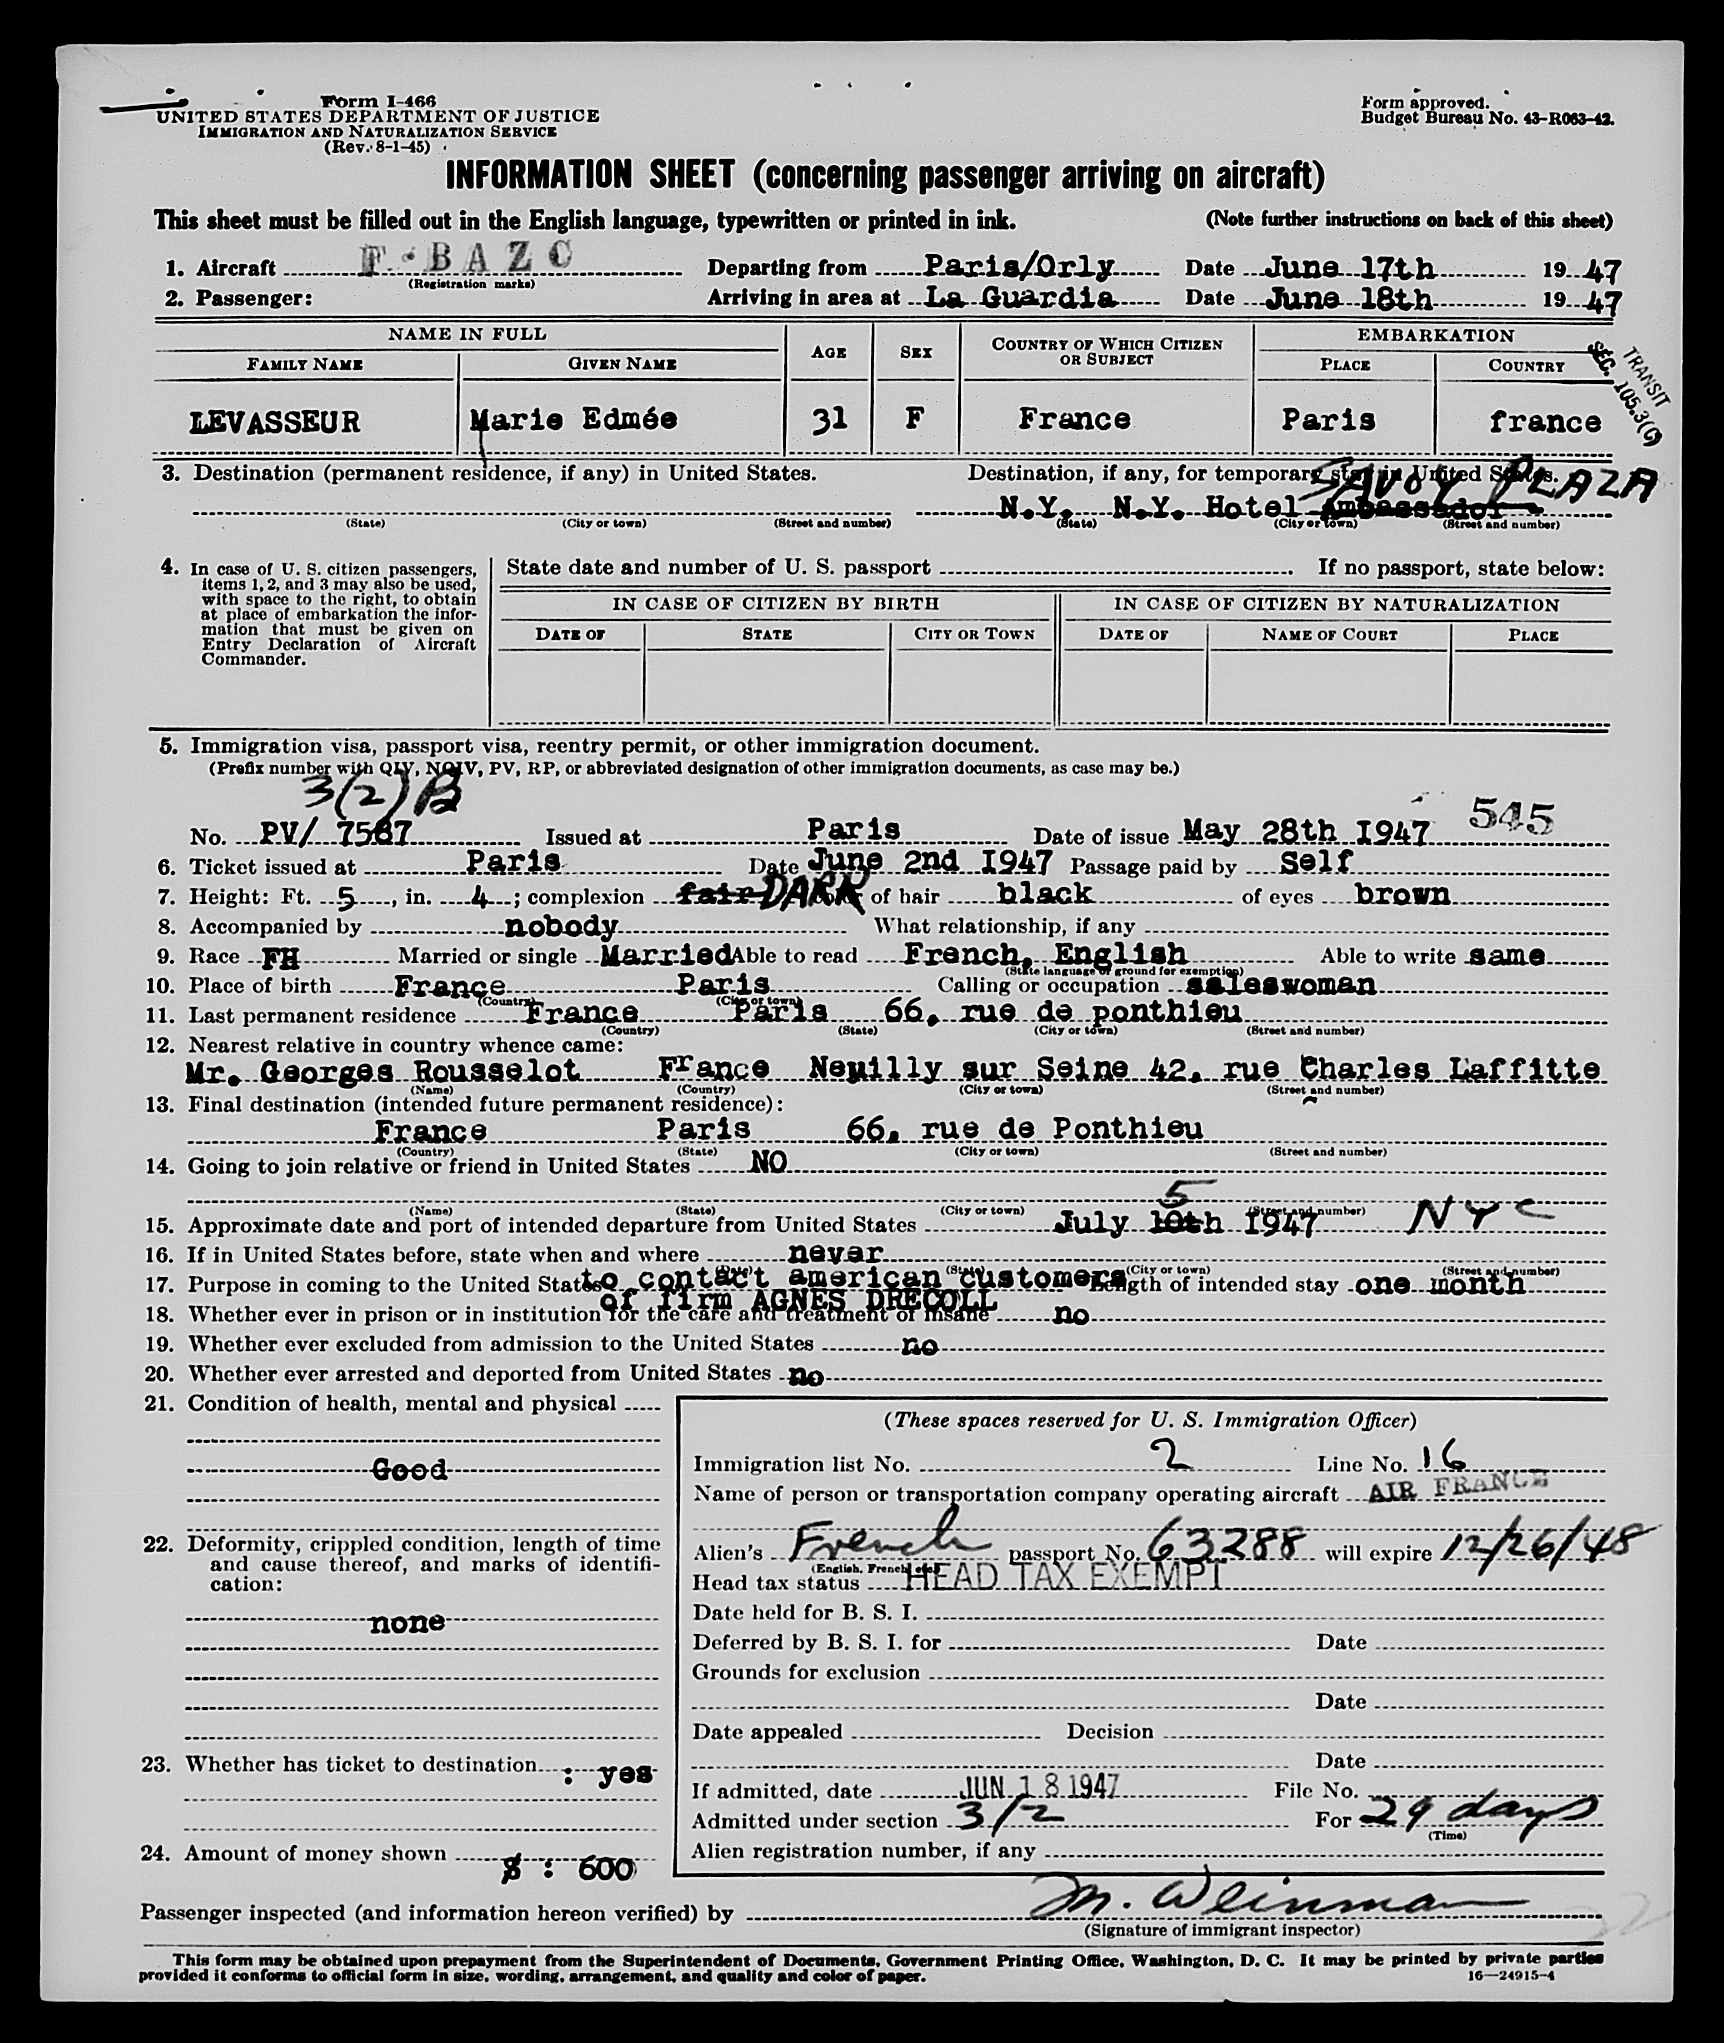 Form I-466
UNITED STATES DEPARTMENT OF JUSTICE
IMMIGRATION AND NATURALIZATION SERVICE
(Rev. 8-1-45)
Form approved.
Budget Bureau No. 43-R063-42.
INFORMATION SHEET (concerning passenger arriving on aircraft)
This sheet must be filled out in the English language, typewritten or printed in ink. (Note further instructions on back of this sheet)
1. Aircraft F-BAZC Departing from Paris/Orly Date June 17th 1947
(Registration marks)
2. Passenger: Arriving in area at La Guardia Date June 18th 1947
NAME IN FULL AGE SEX COUNTRY OF WHICH CITIZEN OR SUBJECT EMBARKATION
FAMILY NAME GIVEN NAME PLACE COUNTRY
TRANSIT
SEC. 105.3(C)
LEVASSEUR Marie Edmée 31 F France Paris france
3. Destination (permanent residence, if any) in United States. Destination, if any, for temporary stay in United States.
SAVOY PLAZA
N.Y. N.Y. Hotel Ambassador
(State) (City or town) (Street and number) (State) (City or town) (Street and number)
4. In case of U. S. citizen passengers, items 1, 2, and 3 may also be used, with space to the right, to obtain at place of embarkation the information that must be given on Entry Declaration of Aircraft Commander.
State date and number of U. S. passport . If no passport, state below:
IN CASE OF CITIZEN BY BIRTH IN CASE OF CITIZEN BY NATURALIZATION
DATE OF STATE CITY OR TOWN DATE OF NAME OF COURT PLACE
5. Immigration visa, passport visa, reentry permit, or other immigration document.
(Prefix number with QIV, NQIV, PV, RP, or abbreviated designation of other immigration documents, as case may be.)
3(2)B
545
No. PV/ 7587 Issued at Paris Date of issue May 28th 1947
6. Ticket issued at Paris Date June 2nd 1947 Passage paid by Self
7. Height: Ft. 5, in. 4; complexion fair DARK color of hair black of eyes brown
8. Accompanied by nobody What relationship, if any
9. Race FH Married or single Married Able to read French, English Able to write same
(State language or ground for exemption)
10. Place of birth France Paris Calling or occupation saleswoman
(Country) (City or town)
11. Last permanent residence France Paris 66, rue de ponthieu
(Country) (State) (City or town) (Street and number)
12. Nearest relative in country whence came:
Mr. Georges Rousselot France Neuilly sur Seine 42, rue Charles Laffitte
(Name) (Country) (City or town) (Street and number)
13. Final destination (intended future permanent residence):
France Paris 66, rue de Ponthieu
(Country) (State) (City or town) (Street and number)
14. Going to join relative or friend in United States NO
(Name) (State) (City or town) (Street and number)
5
15. Approximate date and port of intended departure from United States July 10th 1947 NYC
16. If in United States before, state when and where never
(Date) (State) (City or town) (Street and number)
17. Purpose in coming to the United States to contact american customers Length of intended stay one month
of firm AGNES DRECOLL
18. Whether ever in prison or in institution for the care and treatment of insane no
19. Whether ever excluded from admission to the United States no
20. Whether ever arrested and deported from United States no
21. Condition of health, mental and physical
Good
22. Deformity, crippled condition, length of time and cause thereof, and marks of identification:
none
23. Whether has ticket to destination : yes
24. Amount of money shown $ : 600
(These spaces reserved for U. S. Immigration Officer)
Immigration list No. 2 Line No. 16
Name of person or transportation company operating aircraft AIR FRANCE
Alien's French passport No. 63288 will expire 12/26/48
(English, French, etc.)
Head tax status HEAD TAX EXEMPT
Date held for B. S. I.
Deferred by B. S. I. for Date
Grounds for exclusion
Date
Date appealed Decision
Date
If admitted, date JUN 18 1947 File No.
Admitted under section 3/2 For 29 days
(Time)
Alien registration number, if any
Passenger inspected (and information hereon verified) by M. Weinman
(Signature of immigrant inspector)
This form may be obtained upon prepayment from the Superintendent of Documents, Government Printing Office, Washington, D. C. It may be printed by private parties
provided it conforms to official form in size, wording, arrangement, and quality and color of paper. 16—24915-4